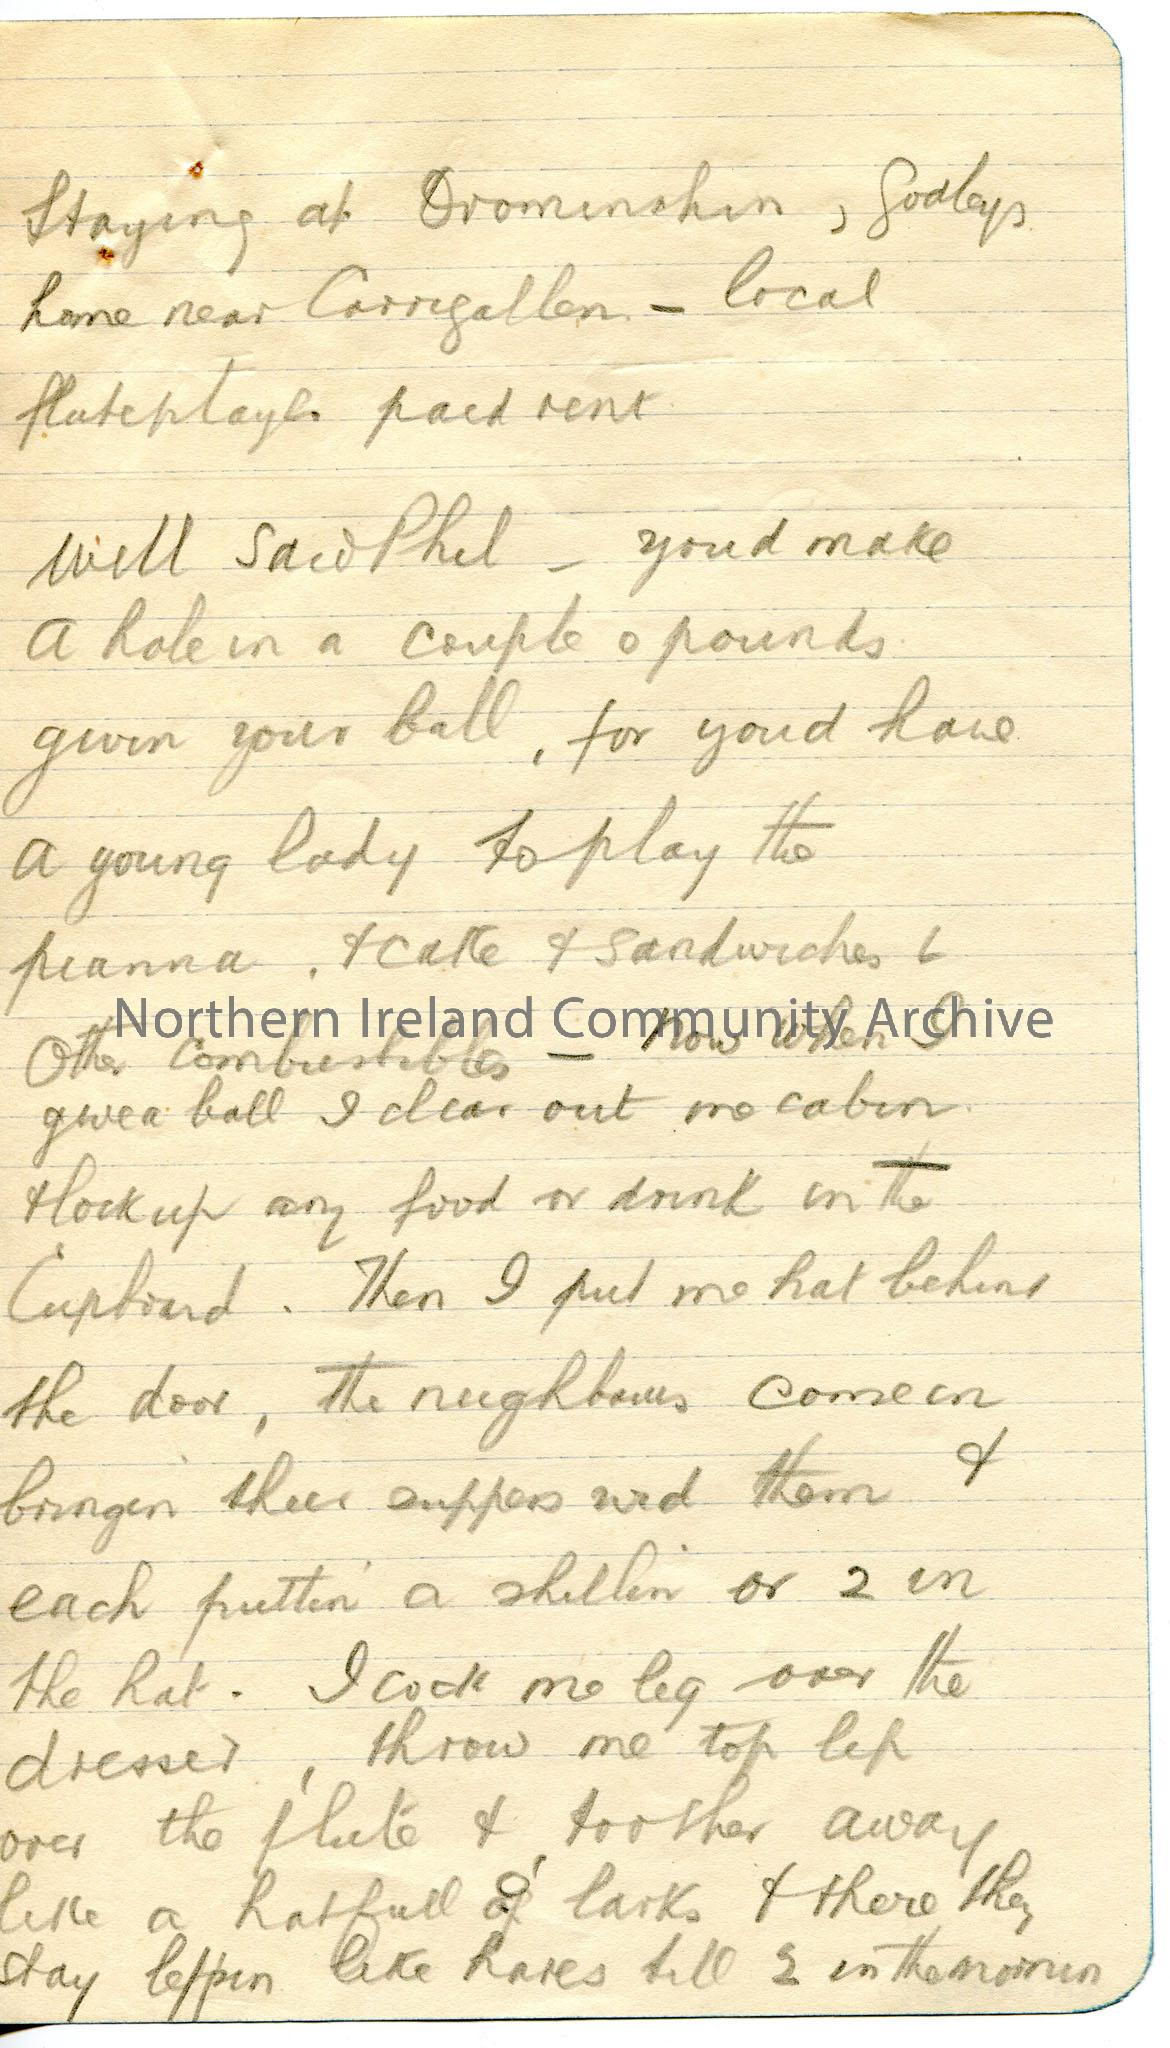 Staying at Drominshin, Godleys
home near Carrigallen. – local
fluteplayer paid rent
Well said Phil – youd make
A hole in a couple o pounds
givin your ball, for youd have
A young lady to play the
pianna. & cake & sandwiches &
Other combustibles – Now when I
Northern Ireland Community Archive
give a ball I clear out me cabin.
& lock up any food or drink in the
Cupboard. Then I put me hat behind
the door, the neighbours come in
bringin' their suppers wid them &
each puttin' a shillin' or 2 in
the hat. I cock me leg over the
dresser, throw me top lip
over the flute & toother away
like a hatfull o' larks & there they
stay leppin like hares till 2 in the mornin